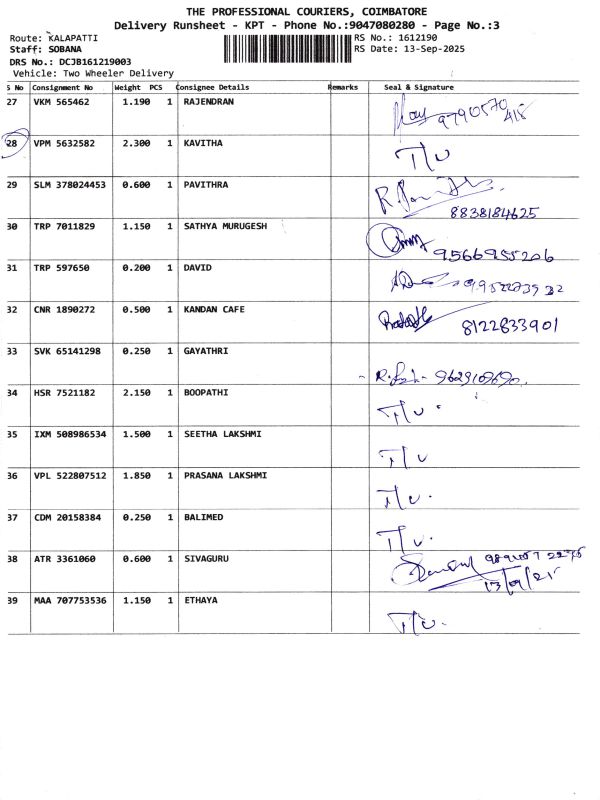 THE PROFESSIONAL COURIERS, COIMBATORE
Delivery Runsheet - KPT - Phone No.:9047080280 - Page No.:3
Route: KALAPATTI
RS No.: 1612190
Staff: SOBANA
RS Date: 13-Sep-2025
DRS No.: DCJB161219003
Vehicle: Two Wheeler Delivery
S No Consignment No Weight PCS Consignee Details Remarks Seal & Signature
27 VKM 565462 1.190 1 RAJENDRAN 9790570 418
28 VPM 5632582 2.300 1 KAVITHA T/U
29 SLM 378024453 0.600 1 PAVITHRA 8838184625
30 TRP 7011829 1.150 1 SATHYA MURUGESH 9566955206
31 TRP 597650 0.200 1 DAVID
32 CNR 1890272 0.500 1 KANDAN CAFE 8122833901
33 SVK 65141298 0.250 1 GAYATHRI
34 HSR 7521182 2.150 1 BOOPATHI T/U
35 IXM 508986534 1.500 1 SEETHA LAKSHMI T/U
36 VPL 522807512 1.850 1 PRASANA LAKSHMI T/U
37 CDM 20158384 0.250 1 BALIMED T/U
38 ATR 3361060 0.600 1 SIVAGURU
39 MAA 707753536 1.150 1 ETHAYA T/U